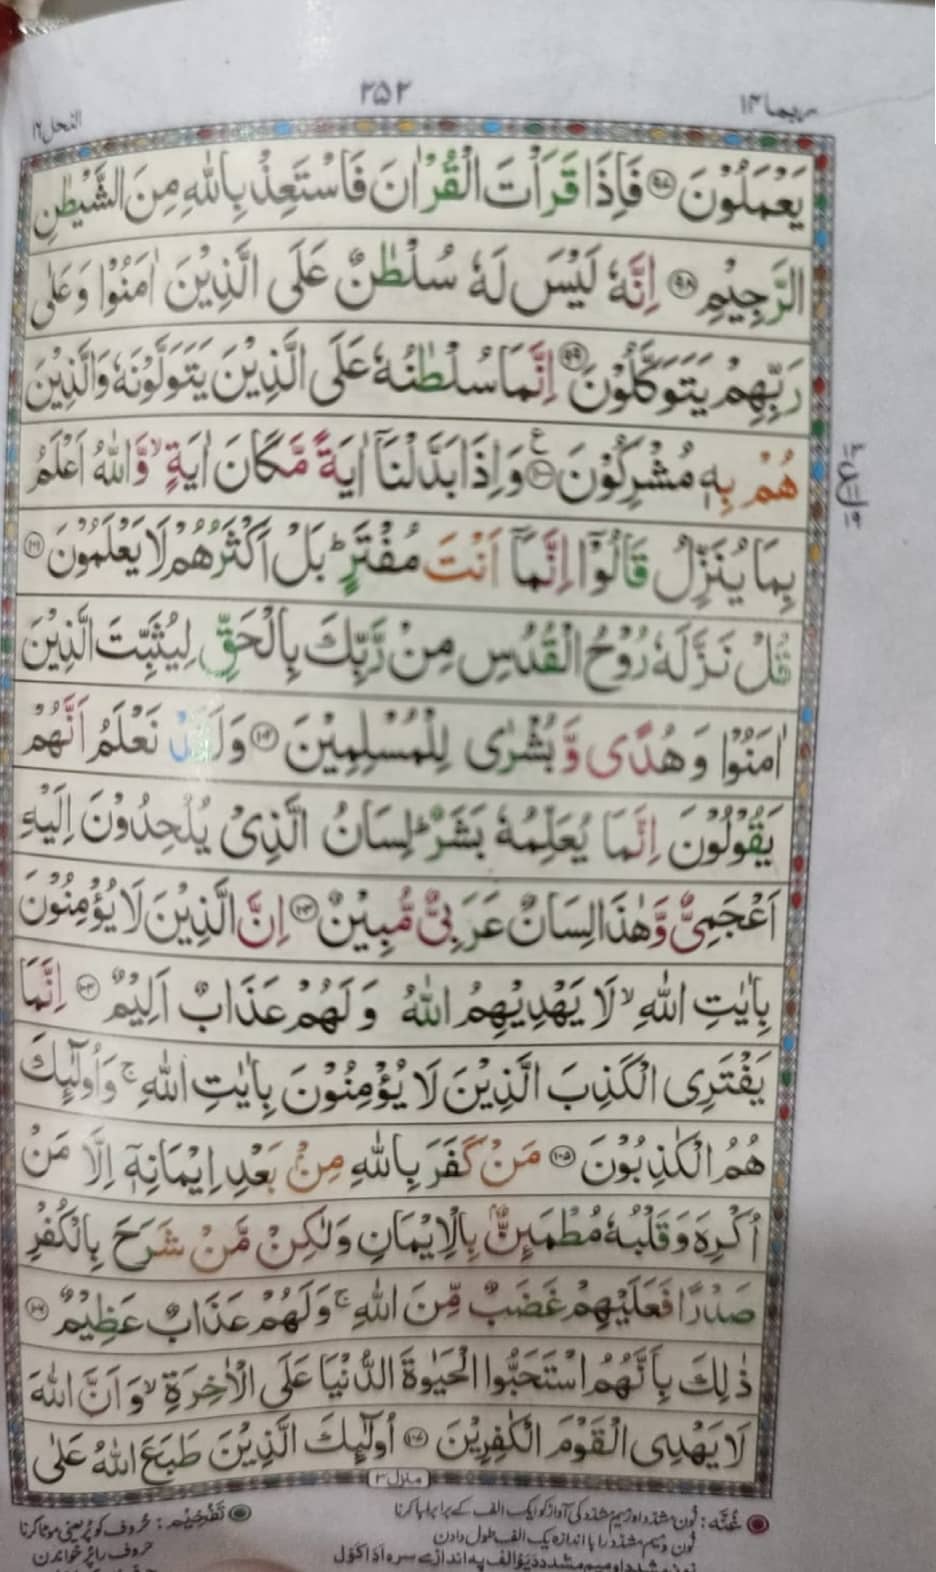 ربما ۱۴
۲۵۲
النحل ۱۶
يَعْمَلُوْنَ ﴿۹۷﴾ فَاِذَا قَرَاْتَ الْقُرْاٰنَ فَاسْتَعِذْ بِاللّٰهِ مِنَ الشَّيْطٰنِ
الرَّجِيْمِ ﴿۹۸﴾ اِنَّهٗ لَيْسَ لَهٗ سُلْطٰنٌ عَلَى الَّذِيْنَ اٰمَنُوْا وَعَلٰى
رَبِّهِمْ يَتَوَكَّلُوْنَ ﴿۹۹﴾ اِنَّمَا سُلْطٰنُهٗ عَلَى الَّذِيْنَ يَتَوَلَّوْنَهٗ وَالَّذِيْنَ
هُمْ بِهٖ مُشْرِكُوْنَ ﴿۱۰۰﴾ ع وَاِذَا بَدَّلْنَاۤ اٰيَةً مَّكَانَ اٰيَةٍ ۙ وَّاللّٰهُ اَعْلَمُ
۱۳
ع
۱۹
بِمَا يُنَزِّلُ قَالُوْۤا اِنَّمَاۤ اَنْتَ مُفْتَرٍ ؕ بَلْ اَكْثَرُهُمْ لَا يَعْلَمُوْنَ ﴿۱۰۱﴾
قُلْ نَزَّلَهٗ رُوْحُ الْقُدُسِ مِنْ رَّبِّكَ بِالْحَقِّ لِيُثَبِّتَ الَّذِيْنَ
اٰمَنُوْا وَهُدًى وَّبُشْرٰى لِلْمُسْلِمِيْنَ ﴿۱۰۲﴾ وَلَقَدْ نَعْلَمُ اَنَّهُمْ
يَقُوْلُوْنَ اِنَّمَا يُعَلِّمُهٗ بَشَرٌ ؕ لِسَانُ الَّذِيْ يُلْحِدُوْنَ اِلَيْهِ
اَعْجَمِيٌّ وَّهٰذَا لِسَانٌ عَرَبِيٌّ مُّبِيْنٌ ﴿۱۰۳﴾ اِنَّ الَّذِيْنَ لَا يُؤْمِنُوْنَ
بِاٰيٰتِ اللّٰهِ ۙ لَا يَهْدِيْهِمُ اللّٰهُ وَلَهُمْ عَذَابٌ اَلِيْمٌ ﴿۱۰۴﴾ اِنَّمَا
يَفْتَرِى الْكَذِبَ الَّذِيْنَ لَا يُؤْمِنُوْنَ بِاٰيٰتِ اللّٰهِ ۚ وَاُولٰٓئِكَ
هُمُ الْكٰذِبُوْنَ ﴿۱۰۵﴾ مَنْ كَفَرَ بِاللّٰهِ مِنْۢ بَعْدِ اِيْمَانِهٖۤ اِلَّا مَنْ
اُكْرِهَ وَقَلْبُهٗ مُطْمَئِنٌّۢ بِالْاِيْمَانِ وَلٰكِنْ مَّنْ شَرَحَ بِالْكُفْرِ
صَدْرًا فَعَلَيْهِمْ غَضَبٌ مِّنَ اللّٰهِ ۚ وَلَهُمْ عَذَابٌ عَظِيْمٌ ﴿۱۰۶﴾
ذٰلِكَ بِاَنَّهُمُ اسْتَحَبُّوا الْحَيٰوةَ الدُّنْيَا عَلَى الْاٰخِرَةِ ۙ وَاَنَّ اللّٰهَ
لَا يَهْدِى الْقَوْمَ الْكٰفِرِيْنَ ﴿۱۰۷﴾ اُولٰٓئِكَ الَّذِيْنَ طَبَعَ اللّٰهُ عَلٰى
منزل ۳
غُنَّه : نُون مشدّد اور میم مشدّد کی آواز کو ایک الف کے برابر لمبا کرنا
نُون و میم مشدّد را با اندازہ یک الف طول دادن
تَفْخِیْم : حروف کو پُر یعنی موٹا کرنا
حروف را پُر خواندن